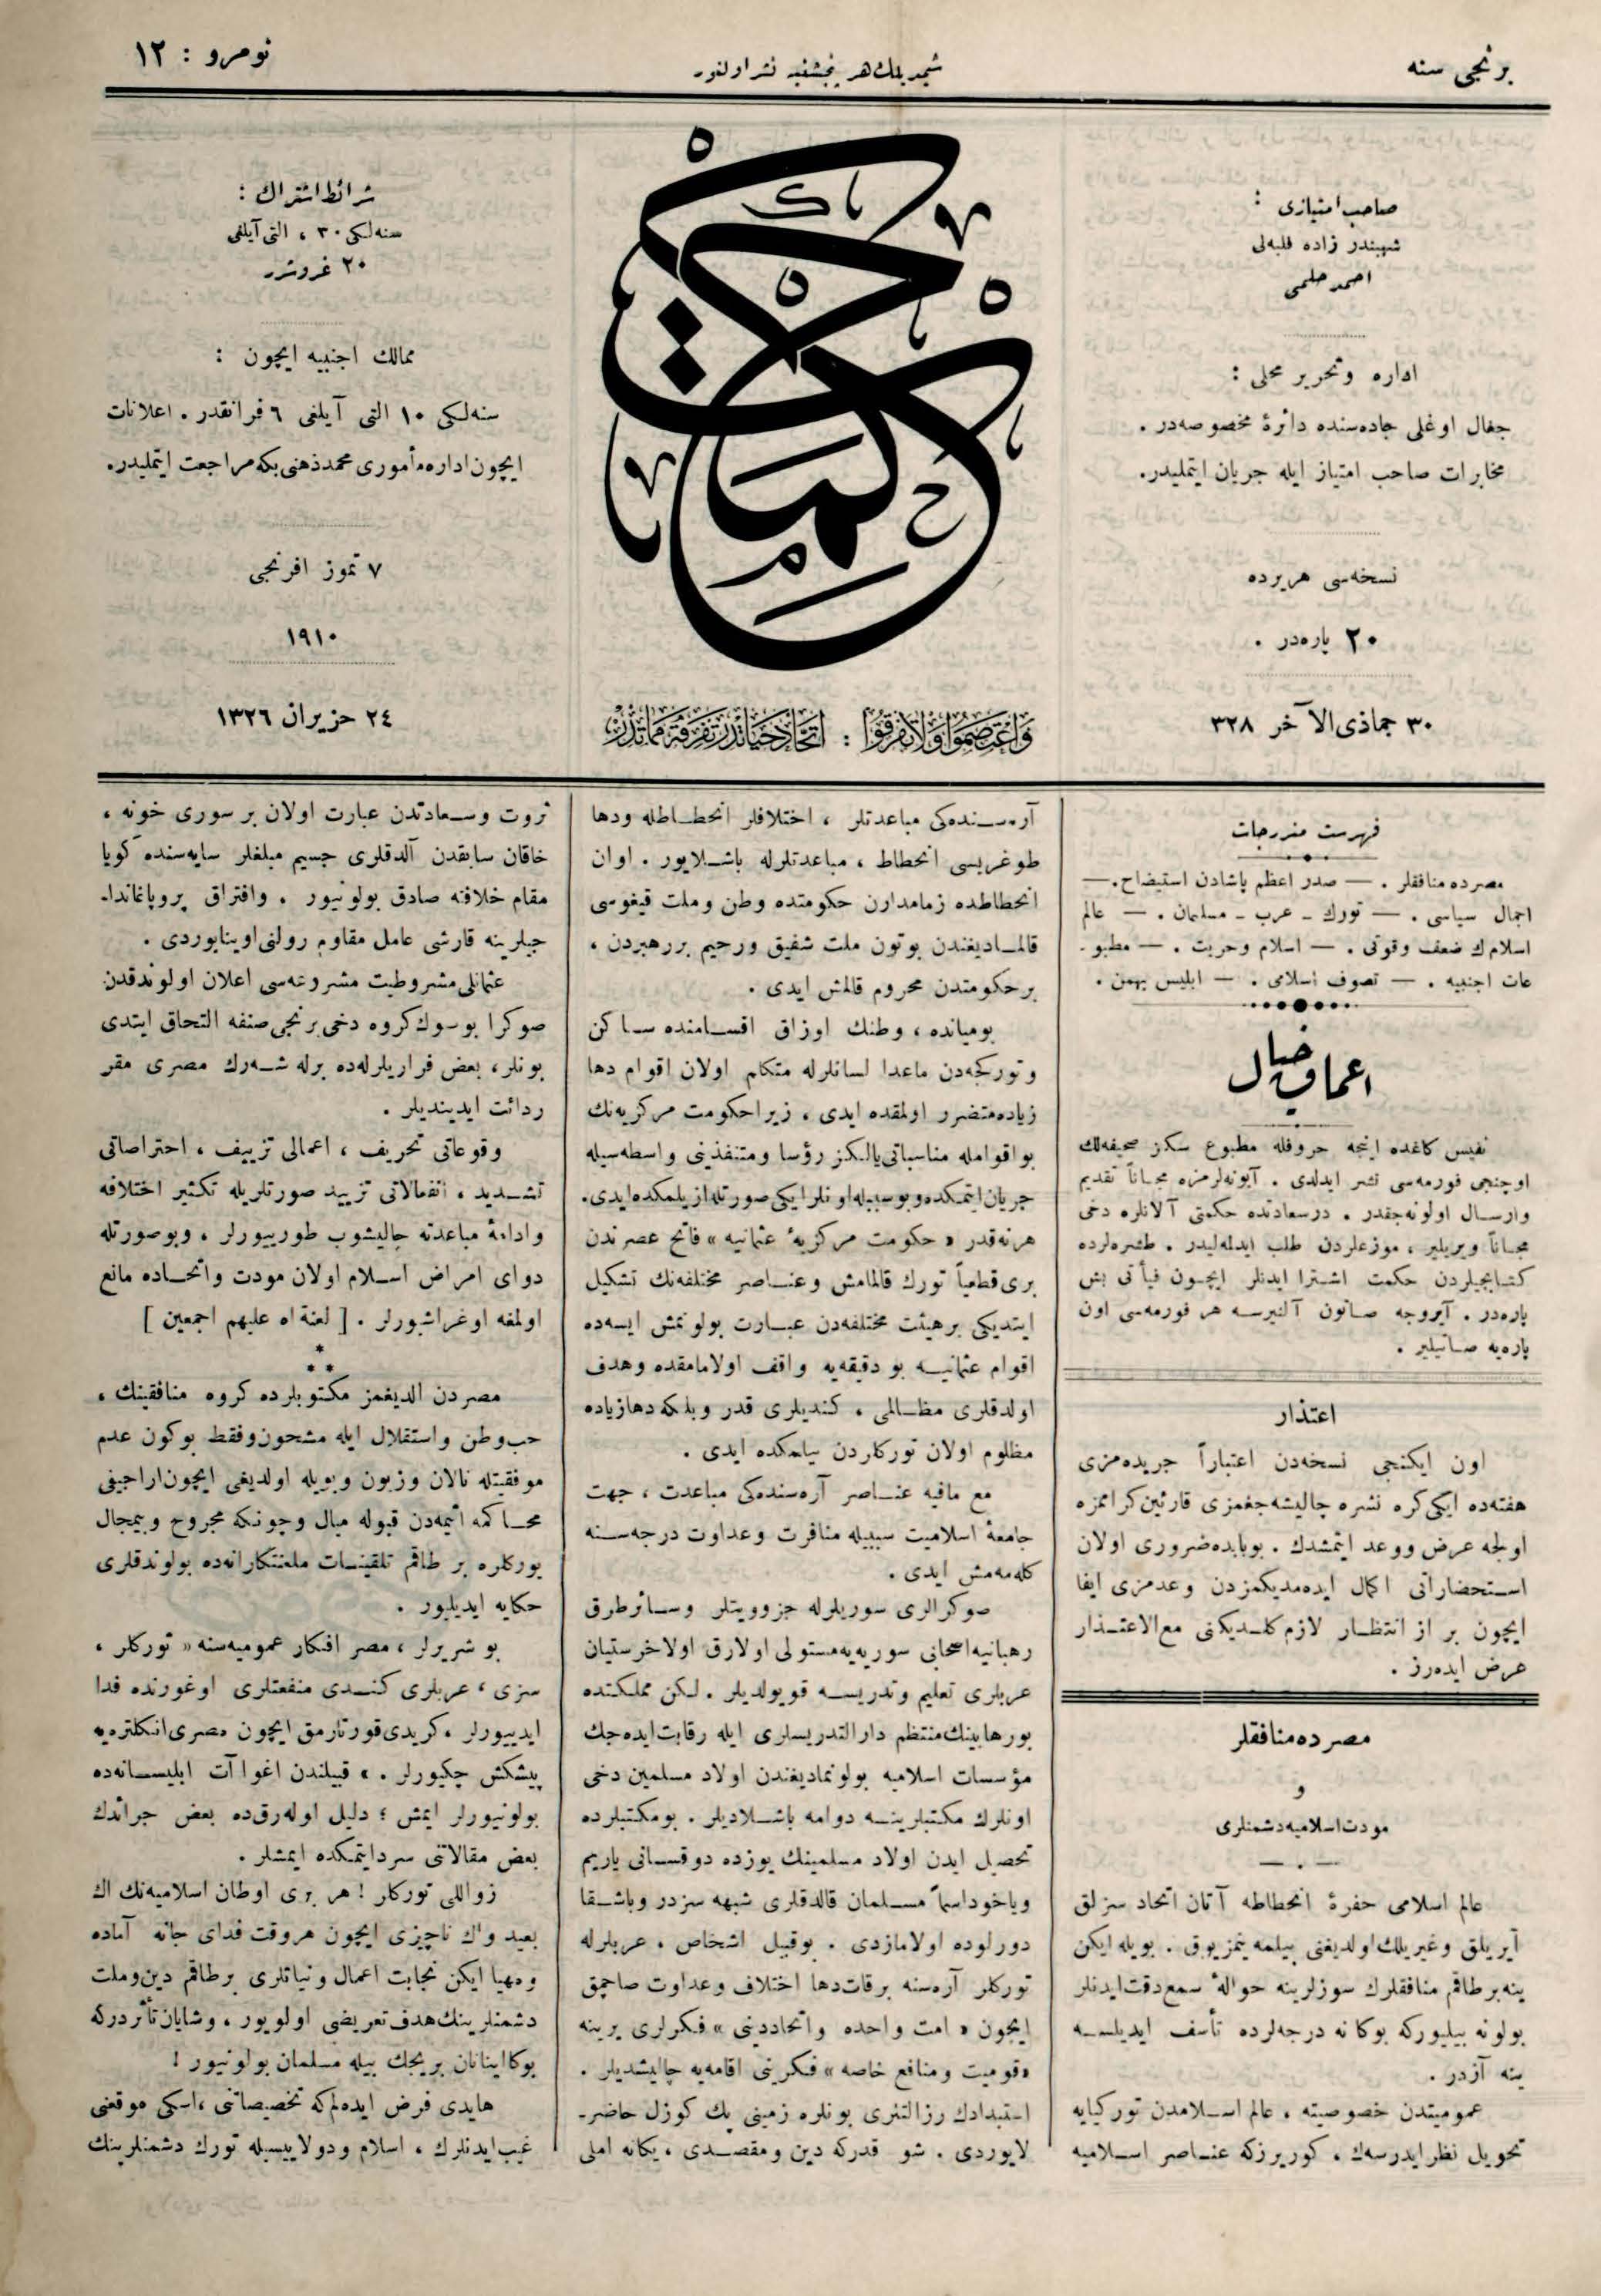 برنجی سنه
شمدیلك هر پنجشنبه نشر اولنور
نومرو : ١٢
صاحب امتیازی :
شهبندر زاده فلبه‌لی
احمد حلمی
اداره وتحریر محلی :
جغال اوغلی جاده‌سنده دائرهٔ مخصوصه‌در .
مخابرات صاحب امتیاز ایله جریان ایتملیدر.
نسخه‌سی هریرده
٢٠ پاره‌در .
٣٠ جماذی‌الآخر ٣٢٨
حكمت
وَاعْتَصِمُوا وَلَا تَفَرَّقُوا : اتحاد حیاتدر تفرقه مماتدر
شرائط اشتراك :
سنه‌لكی ٣٠ ، التی آیلغی
٢٠ غروشدر
ممالك اجنبیه ایچون :
سنه‌لكی ١٠ التی آیلغی ٦ فرانقدر . اعلانات
ایچون اداره مأموری محمد ذهنی بكه مراجعت ایتملیدر.
٧ تموز افرنجی
١٩١٠
٢٤ حزیران ١٣٢٦
فهرست مندرجات
مصرده منافقلر . — صدر اعظم پاشادن استیضاح . —
اجمال سیاسی . — تورك ـ عرب ـ مسلمان . — عالم
اسلامك ضعف وقوتی . — اسلام وحریت . — مطبو-
عات اجنبیه . — تصوف اسلامی . — ابلیس بهمن .
اعماق خیال
نفیس كاغده اینجه حروفله مطبوع سكز صحیفه‌لك
اوچنجی فورمه‌سی نشر ایدلدی . آبونه‌لرمزه مجاناً تقدیم
وارسال اولونه‌جقدر . درسعادتده حكمتی آلانلره دخی
مجاناً ویریلیر ، موزعلردن طلب ایدلملیدر . طشره‌لرده
كتابجیلردن حكمت اشترا ایدنلر ایچون فیأتی بش
پاره‌در . آیروجه صاتون آلنیرسه هر فورمه‌سی اون
پاره‌یه صاتیلیر .
اعتذار
اون ایكنجی نسخه‌دن اعتباراً جریده‌مزی
هفته‌ده ایكی كره نشره چالیشه‌جغمزی قارئین كرامزه
اولجه عرض ووعد ایتمشدك . بوبابده ضروری اولان
استحضاراتی اكمال ایده‌مدیكمزدن وعدمزی ایفا
ایچون بر از انتظار لازم كلدیكنی مع‌الاعتذار
عرض ایده‌رز .
مصرده منافقلر
و
مودت اسلامیه دشمنلری
عالم اسلامی حفرهٔ انحطاطه آتان اتحاد سزلق
آیریلق وغیریلك اولدیغنی بیلمه‌ینمز یوق . بویله ایكن
ینه برطاقم منافقلرك سوزلرینه حوالهٔ سمع دقت ایدنلر
بولونه بیلیوركه بوكا نه درجه‌لرده تأسف ایدیلسه
ینه آزدر .
عمومیتدن خصوصیته ، عالم اسلامدن توركیایه
تحویل نظر ایدرسه‌ك ، كوریرزكه عناصر اسلامیه
آره‌سنده‌كی مباعدتلر ، اختلافلر انحطاطله ودها
طوغریسی انحطاط ، مباعدتلرله باشلایور . اوان
انحطاطده زمامدارن حكومتده وطن وملت قیغوسی
قالمادیغندن بوتون ملت شفیق ورحیم بررهبردن ،
برحكومتدن محروم قالمش ایدی .
بومیانده ، وطنك اوزاق اقسامنده ساكن
وتوركجه‌دن ماعدا لسانلرله متكلم اولان اقوام دها
زیاده متضرر اولمقده ایدی ، زیرا حكومت مركزیه‌نك
بواقوامله مناسباتی یالكز رؤسا ومتنفذینی واسطه‌سیله
جریان ایتمكده وبوسببله اونلر ایكی صورتله ازیلمكده ایدی.
هرنه‌قدر « حكومت مركزیهٔ عثمانیه » فاتح عصرندن
بری قطعیاً تورك قالمامش وعناصر مختلفه‌نك تشكیل
ایتدیكی برهیئت مختلفه‌دن عبارت بولونمش ایسه‌ده
اقوام عثمانیه بو دقیقه‌یه واقف اولامامقده وهدف
اولدقلری مظالمی ، كندیلری قدر وبلكه دها زیاده
مظلوم اولان توركلردن بیلمكده ایدی .
مع مافیه عناصر آره‌سنده‌كی مباعدت ، جهت
جامعهٔ اسلامیت سببیله منافرت وعداوت درجه‌سنه
كله‌مه‌مش ایدی .
صوكرالری سوریلرله جزوویتلر وسائر طرق
رهبانیه اصحابی سوریه‌یه مستولی اولارق اولا خرستیان
عربلری تعلیم وتدریسه قویولدیلر . لكن مملكتده
بورهابینك منتظم دارالتدریسلری ایله رقابت ایده‌جك
مؤسسات اسلامیه بولونمادیغندن اولاد مسلمین دخی
اونلرك مكتبلرینه دوامه باشلادیلر . بومكتبلرده
تحصیل ایدن اولاد مسلمینك یوزده دوقسانی یاریم
ویاخود اسماً مسلمان قالدقلری شبهه سزدر وباشقا
دورلوده اولامازدی . بوقبیل اشخاص ، عربلرله
توركلر آره‌سنه برقات‌دها اختلاف وعداوت صاچمق
ایچون « امت واحده واتحاددینی » فكرلری یرینه
«قومیت ومنافع خاصه» فكرینی اقامه‌یه چالیشدیلر .
استبدادك رزالتلری بونلره زمینی پك كوزل حاضر-
لایوردی . شو قدركه دین ومقصدی ، یكانه املی
ثروت وسعادتدن عبارت اولان بر سوری خونه ،
خاقان سابقدن آلدقلری جسیم مبلغلر سایه‌سنده كویا
مقام خلافته صادق بولونیور . وافتراق پروپاغاندا-
جیلرینه قارشی عامل مقاوم رولنی اوینایوردی .
عثمانلی مشروطیت مشروعه‌سی اعلان اولوندقدن
صوكرا بوسوك كروه دخی برنجی صنفه التحاق ایتدی
بونلر، بعض فراریلرله‌ده برله شه‌رك مصری مقر
ردائت ایدیندیلر .
وقوعاتی تحریف ، اعمالی تزییف ، احتراصاتی
تشدید ، انفعالاتی تزیید صورتلریله تكثیر اختلافه
وادامهٔ مباعدته چالیشوب طورییورلر ، وبوصورتله
دوای امراض اسلام اولان مودت واتحاده مانع
اولمغه اوغراشیورلر . [ لعنة‌اه علیهم اجمعین ]
مصردن الدیغمز مكتوبلرده كروه منافقینك ،
حب‌وطن واستقلال ایله مشحون وفقط بوكون عدم
موفقیتله نالان وزبون وبویله اولدیغی ایچون اراجیفی
محاكمه ایتمه‌دن قبوله میال وچونكه مجروح وبیمجال
یوركلره بر طاقم تلقینات ملعنتكارانه‌ده بولوندقلری
حكایه ایدیلیور .
بو شریرلر ، مصر افكار عمومیه‌سنه « توركلر ،
سزی ، عربلری كندی منفعتلری اوغورنده فدا
ایدییورلر ، كریدی قورتارمق ایچون مصری انكلتره‌یه
پیشكش چكیورلر . » قبیلندن اغواآت ابلیسانه‌ده
بولونیورلر ایمش ؛ دلیل اوله‌رق‌ده بعض جرائدك
بعض مقالاتنی سردایتمكده ایمشلر .
زواللی توركلر ! هر بری اوطان اسلامیه‌نك اك
بعید واك ناچیزی ایچون هروقت فدای جانه آماده
ومهیا ایكن نجابت اعمال ونیاتلری برطاقم دین وملت
دشمنلرینك هدف تعریضی اولویور ، وشایان تأثردركه
بوكا اینانان بریجك بیله مسلمان بولونیور !
هایدی فرض ایده‌لم كه تخصیصاتنی ، اسكی موقعنی
غیب ایدنلرك ، اسلام ودولاییسیله تورك دشمنلرینك